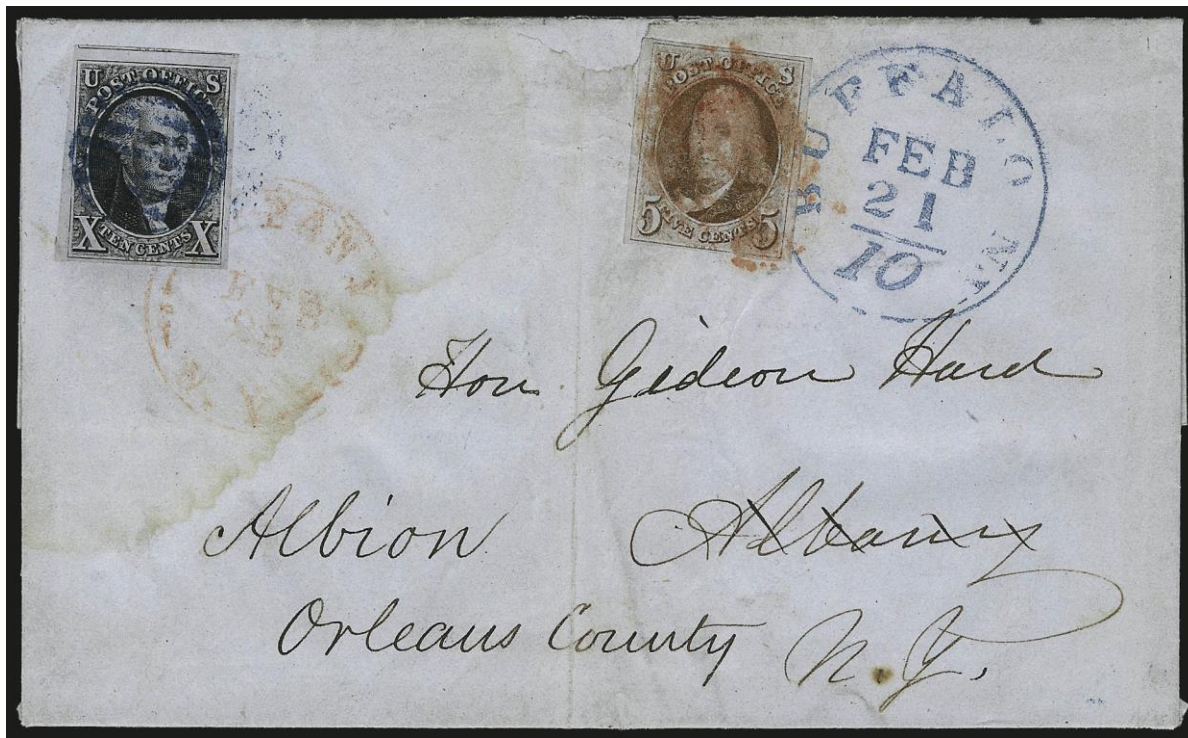 U S
POST OFFICE
X X
TEN CENTS
U S
POST OFFICE
5 5
FIVE CENTS
BUFFALO N.Y.
FEB
21
10
ALBANY
FEB
N.Y.
Hon Gideon Hard
Albion Albany
Orleans County N.Y.